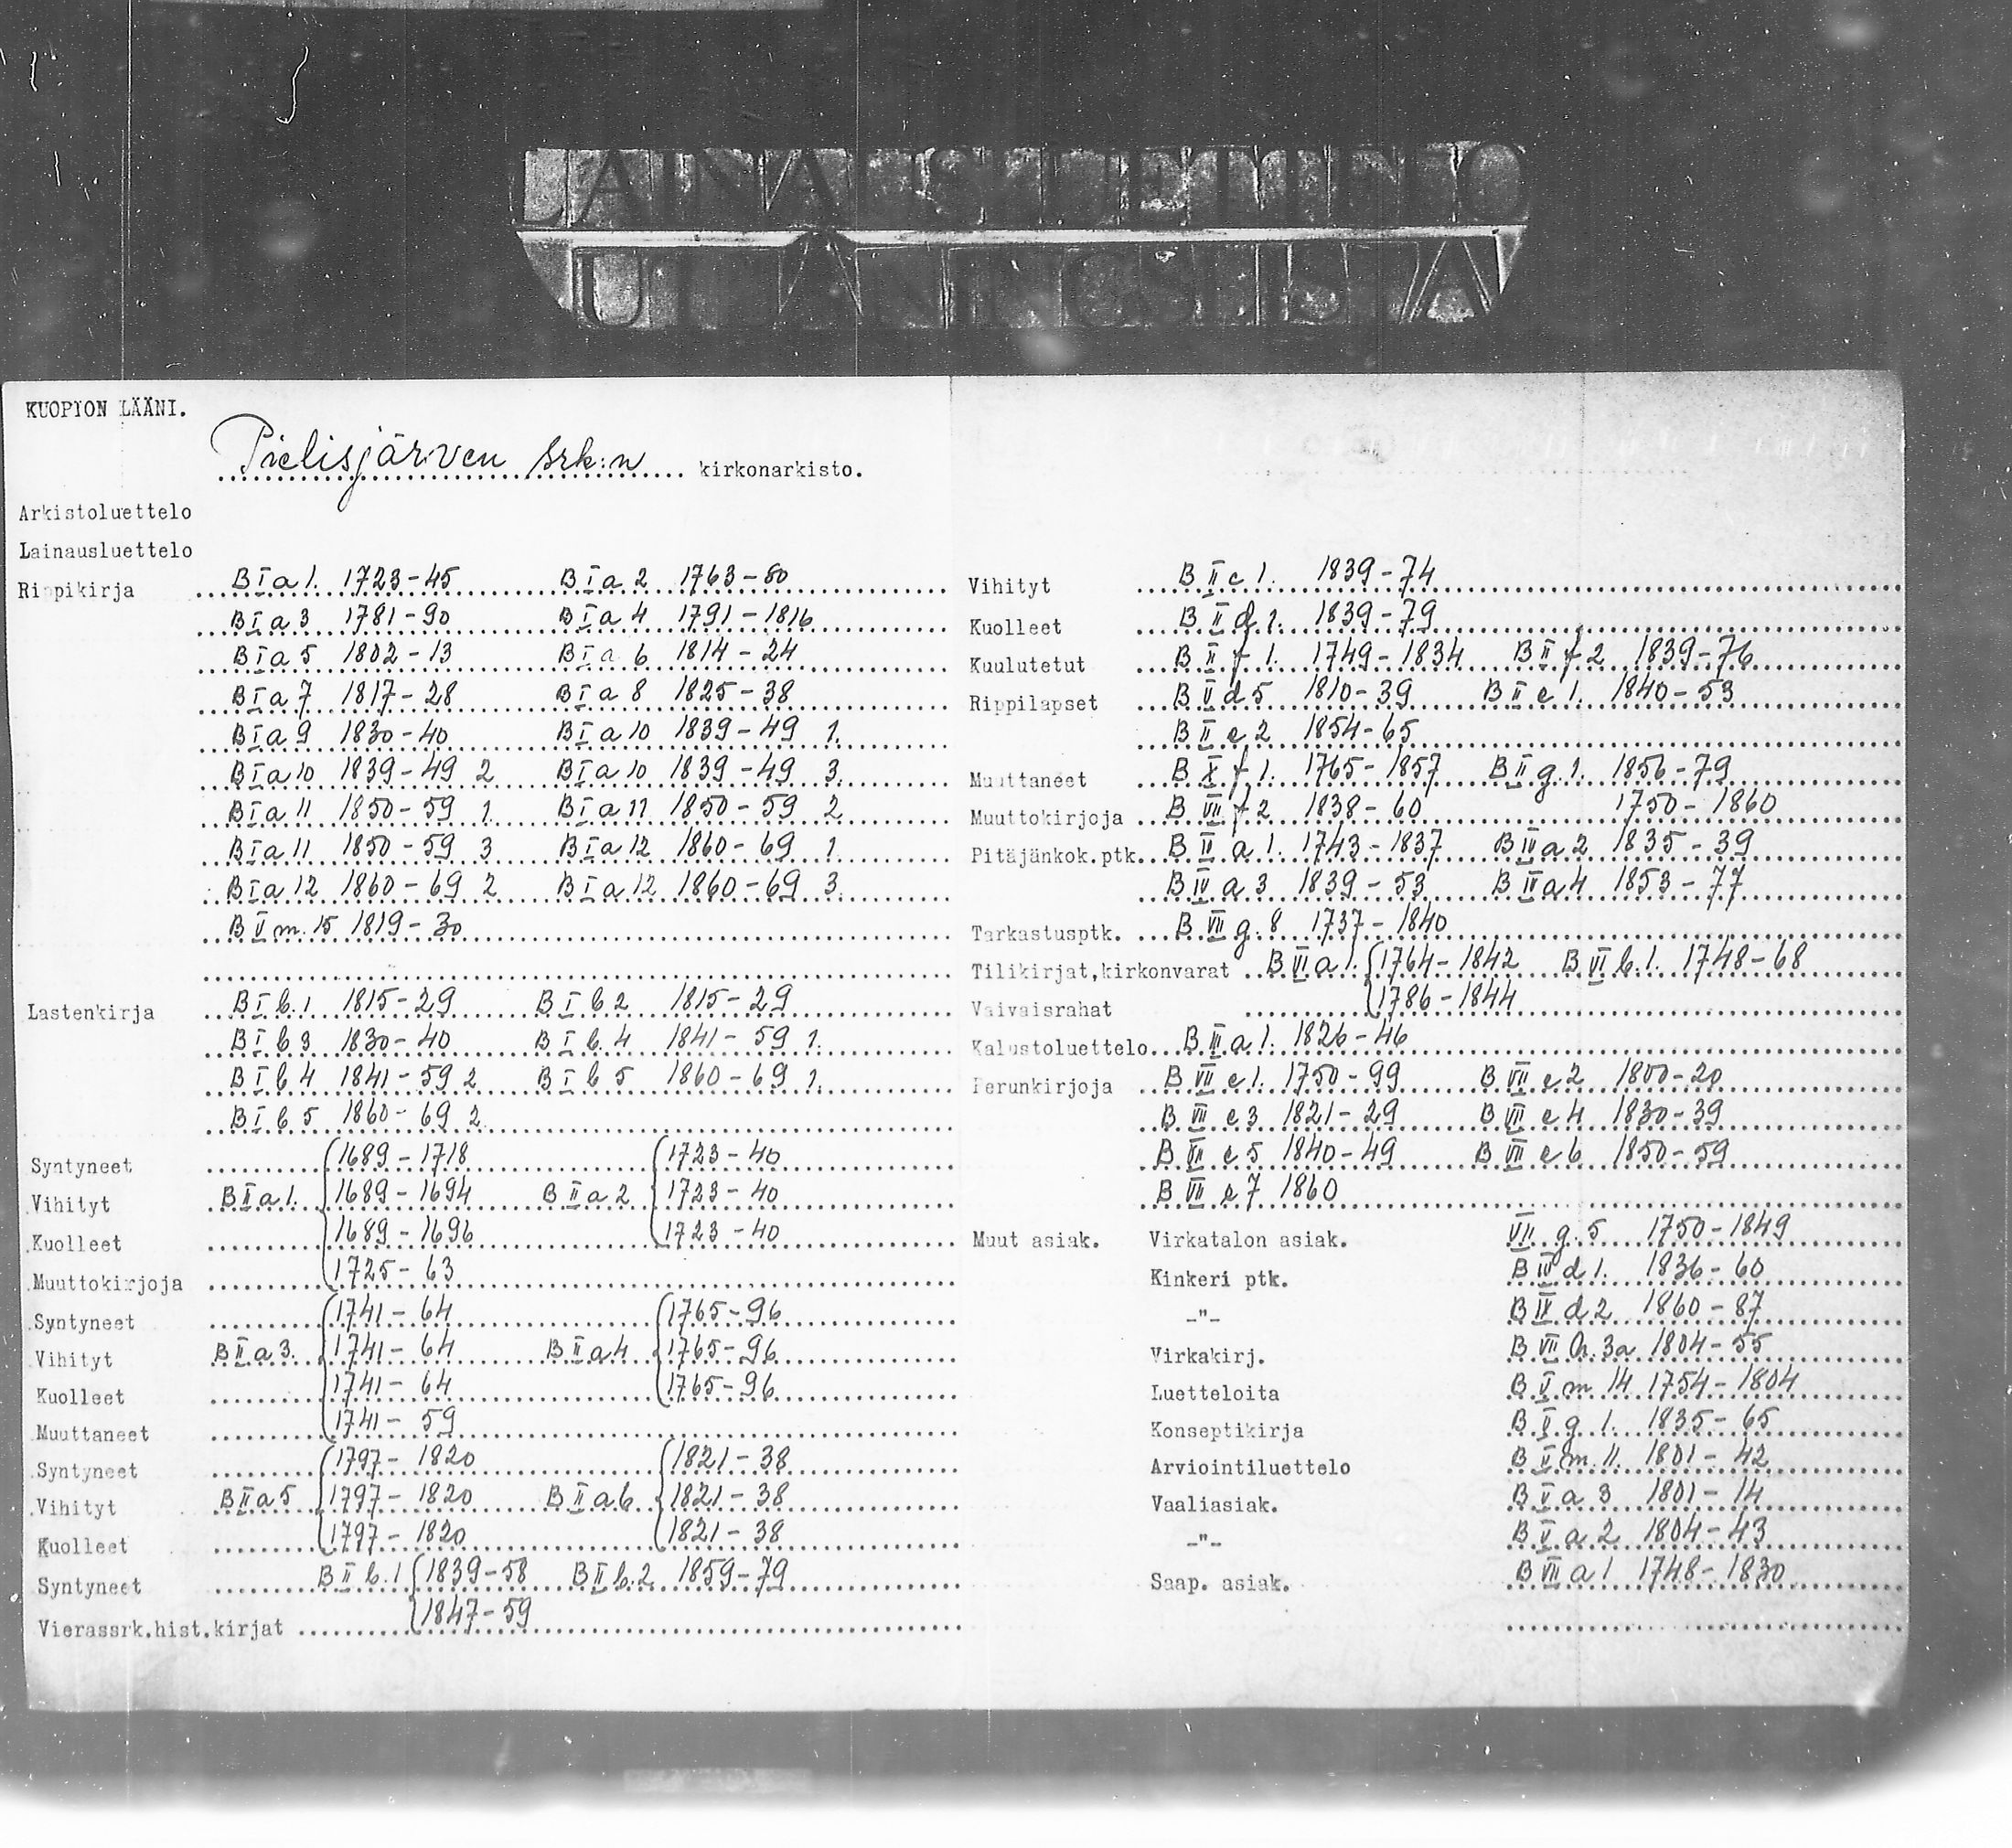 LAINAUSLUETTELO
UTLÅNINGSLISTA
KUOPION LÄÄNI.
Pielisjärven srk:n kirkonarkisto.
Arkistoluettelo
Lainausluettelo
Rippikirja B I a 1. 1723-45 B I a 2 1763-80
B I a 3 1781-90 B I a 4 1791-1816
B I a 5 1802-13 B I a 6 1814-24
B I a 7 1817-28 B I a 8 1825-38
B I a 9 1830-40 B I a 10 1839-49 1.
B I a 10 1839-49 2 B I a 10 1839-49 3.
B I a 11 1850-59 1. B I a 11 1850-59 2
B I a 11 1850-59 3 B I a 12 1860-69 1.
B I a 12 1860-69 2 B I a 12 1860-69 3.
B V m. 15 1819-30
Lastenkirja B I b. 1 1815-29 B I b 2 1815-29
B I b 3 1830-40 B I b. 4 1841-59 1.
B I b 4 1841-59 2 B I b 5 1860-69 1.
B I b 5 1860-69 2
Syntyneet 1689-1718 1723-40
Vihityt B II a 1. 1689-1694 B II a 2 1723-40
Kuolleet 1689-1696 1723-40
Muuttokirjoja 1725-63
Syntyneet 1741-64 1765-96
Vihityt B II a 3. 1741-64 B II a 4 1765-96
Kuolleet 1741-64 1765-96
Muuttaneet 1741-59
Syntyneet 1797-1820 1821-38
Vihityt B II a 5 1797-1820 B II a 6 1821-38
Kuolleet 1797-1820 1821-38
Syntyneet B II b. 1 1839-58 B II b. 2 1859-79
Vierassrk.hist.kirjat 1847-59
Vihityt B II c 1. 1839-74
Kuolleet B II d 1. 1839-79
Kuulutetut B II f 1. 1749-1834 B II f 2 1839-76
Rippilapset B V d 5 1810-39 B II e 1. 1840-53
B II e 2 1854-65
Muuttaneet B X f 1. 1765-1857 B II g. 1. 1856-79
Muuttokirjoja B VII f 2 1838-60 1750-1860
Pitäjänkok.ptk. B IV a 1. 1743-1837 B IV a 2 1835-39
B IV a 3 1839-53 B IV a 4 1853-77
Tarkastusptk. B VII g. 8 1737-1840
Tilikirjat,kirkonvarat B VI a 1. 1764-1842 B VI b. 1. 1748-68
Vaivaisrahat 1786-1844
Kalustoluettelo B III a 1. 1826-46
Perunkirjoja B VII e 1. 1750-99 B VII e 2 1800-20
B VII e 3 1821-29 B VII e 4 1830-39
B VII e 5 1840-49 B VII e 6 1850-59
B VII e 7 1860
Muut asiak. Virkatalon asiak. VII g. 5 1750-1849
Kinkeri ptk. B IV d 1. 1836-60
-"- B IV d 2 1860-87
Virkakirj. B VII h. 3a 1804-55
Luetteloita B V m 14 1754-1804
Konseptikirja B V g 1. 1835-65
Arviointiluettelo B V m. 11. 1801-42
Vaaliasiak. B V a 3 1801-14
-"- B V a 2 1804-43
Saap. asiak. B VII a 1 1748-1830